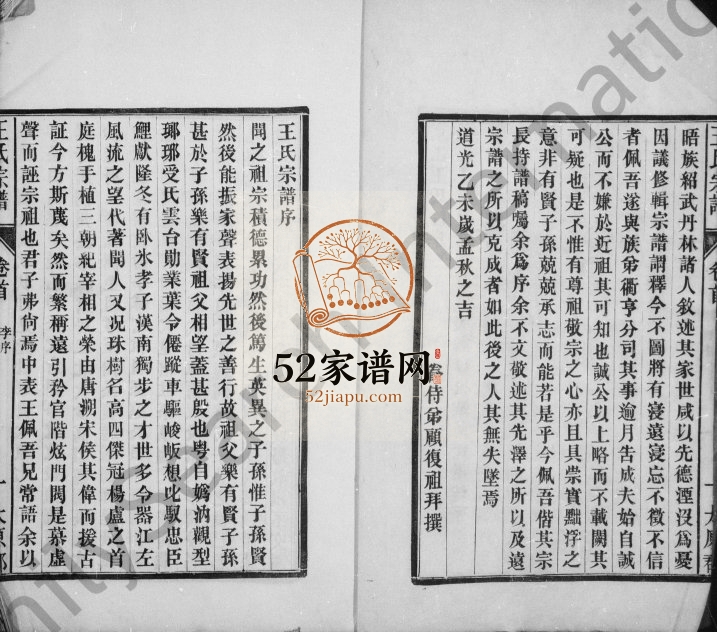 王氏宗譜
卷首
晤族紹武丹林諸人敘述其家世咸以先德湮沒爲憂
因議修輯宗譜謂釋今不圖將有寖遠寖忘不徵不信
者佩吾遂與族弟衢亨分司其事逾月告成夫始自誠
公而不嫌於近祖其可知也誠公以上略而不載闕其
可疑也是不惟有尊祖敬宗之心亦且具崇實黜浮之
意非有賢子孫兢兢承志而能若是乎今佩吾偕其宗
長持譜稿屬余爲序余不文敬述其先澤之所以及遠
宗譜之所以克成者如此後之人其無失墜焉
道光乙未歲孟秋之吉
侍弟顧復祖拜撰
王氏宗譜序
聞之祖宗積德累功然後篤生英異之子孫惟子孫賢
然後能振家聲表揚先世之善行故祖父樂有賢子孫
甚於子孫樂有賢祖父相望蓋甚殷也粵自嬀汭觀型
瑯琊受氏雲台勛業葉令僊蹤車驅峻坂想此馭忠臣
鯉獻隆冬有臥氷孝子漢南獨步之才世多令器江左
風流之望代著聞人又况珠樹名高四傑冠楊盧之首
庭槐手植三朝紀宰相之榮由唐溯宋侯其偉而援古
証今方斯蔑矣然而繁稱遠引矜官階炫門閥是慕虛
聲而誣宗祖也君子弗尙焉中表王佩吾兄常語余以
王氏宗譜
卷首
李序
一
太原郡
52家谱网
52jiapu.com